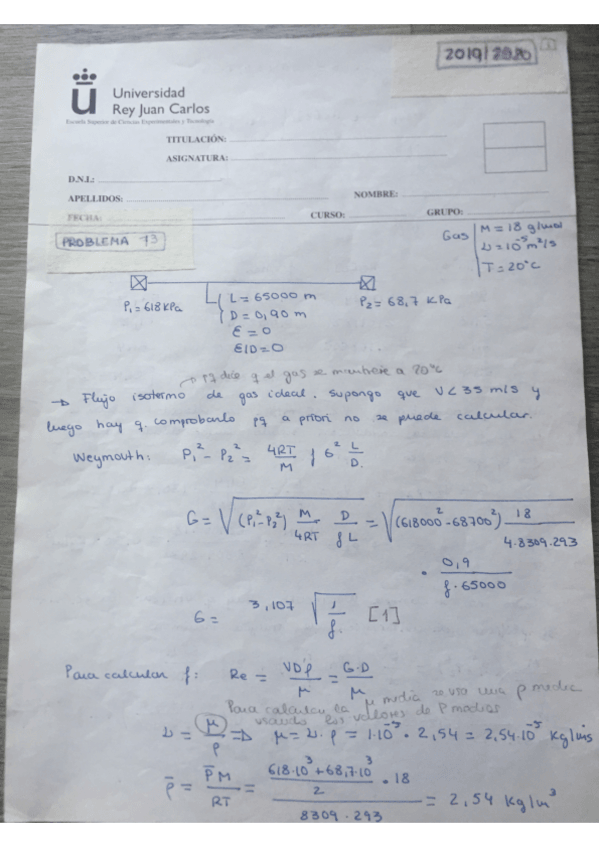 2019/2020
Universidad
Rey Juan Carlos
Escuela Superior de Ciencias Experimentales y Tecnología
TITULACIÓN:
ASIGNATURA:
D.N.I.:
APELLIDOS: NOMBRE:
FECHA: CURSO: GRUPO:
PROBLEMA 73
Gas M = 18 g/mol
ν = 10^-5 m²/s
T = 20°C
P₁ = 618 KPa
L = 65000 m
D = 0,90 m
ε = 0
ε/D = 0
P₂ = 68,7 KPa
pq dice q el gas se mantiene a 20°C
→ Flujo isotermo de gas ideal. Supongo que V < 35 m/s y
luego hay q. comprobarlo pq a priori no se puede calcular.
Weymouth: P₁² - P₂² = 4RT/M f G² L/D
G = √((P₁²-P₂²) M/4RT D/fL) = √((618000² - 68700²) 18/4·8309·293
· 0,9/f·65000
G = 3,107 √(1/f) [1]
Para calcular f: Re = VDρ/μ = G·D/μ
Para calcular la μ media se usa una ρ media
usando los valores de P medios
ν = μ/ρ ⇒ μ = ν·ρ = 1·10^-5 · 2,54 = 2,54·10^-5 Kg/ms
ρ̄ = P̄M/RT = ((618·10³ + 68,7·10³)/2 · 18)/(8309·293) = 2,54 Kg/m³